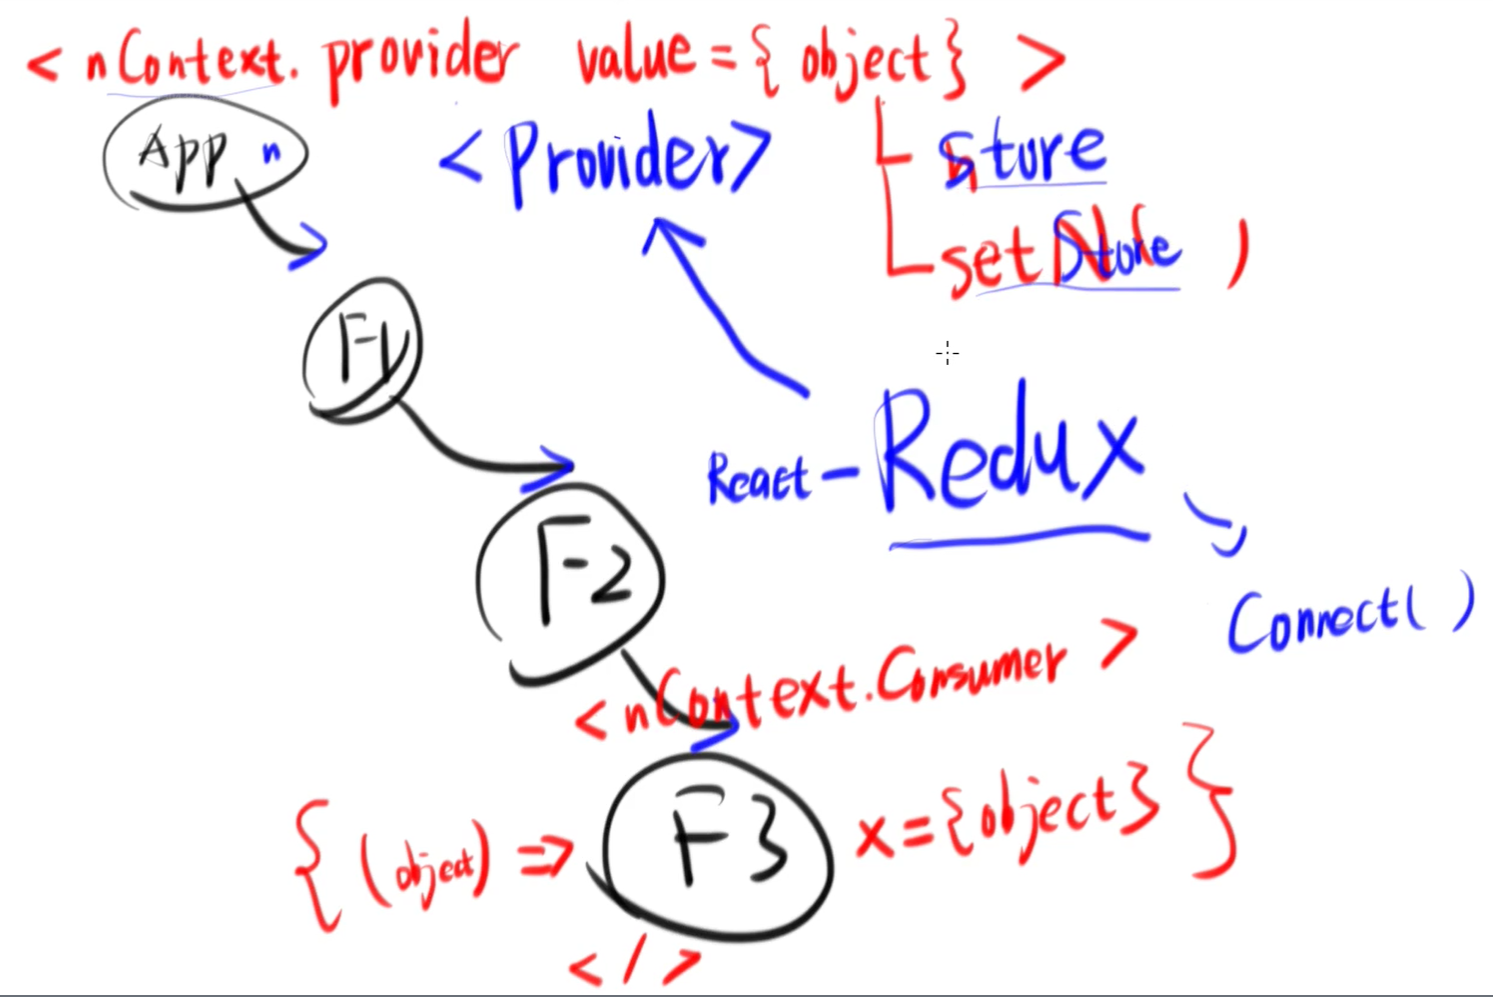 < nContext. provider value = { object } >
App n
< Provider >
store
set Store )
F1
React - Redux
F2
Connect( )
< nContext.Consumer >
{ (object) => F3 x = {object} }
< / >